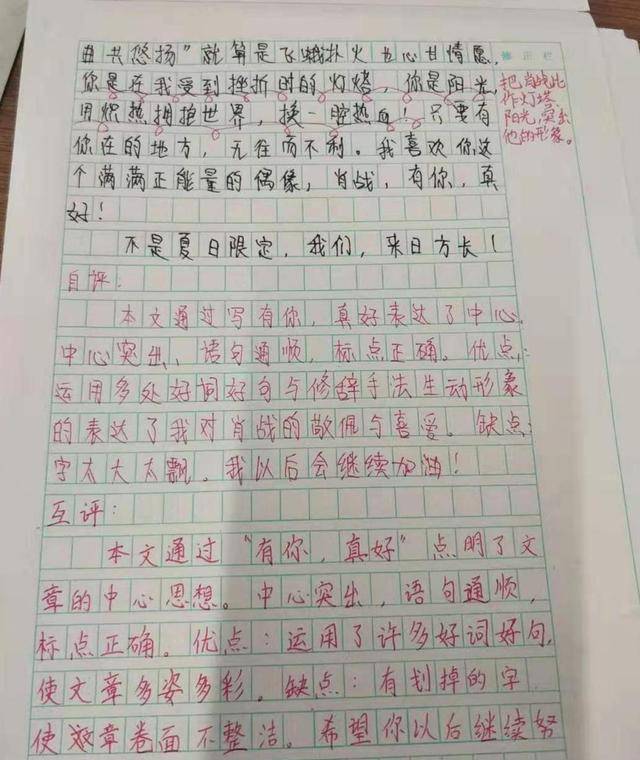 且共悠扬”就算是飞蛾扑火也心甘情愿，
你是在我受到挫折时的灯塔，你是阳光，
用炽热拥抱世界，换一腔热血！只要有
你在的地方，无往而不利。我喜欢你这
个满满正能量的偶像，肖战，有你，真
好！
不是夏日限定，我们，来日方长！
修正栏
把肖战比
作灯塔，
阳光，突出
他的形象。
自评：
本文通过写有你，真好表达了中心，
中心突出、语句通顺，标点正确。优点：
运用多处好词好句与修辞手法生动形象
的表达了我对肖战的敬佩与喜爱。缺点：
字太大太飘。我以后会继续加油！
互评：
本文通过“有你，真好”点明了文
章的中心思想。中心突出，语句通顺，
标点正确。优点：运用了许多好词好句，
使文章多姿多彩。缺点：有划掉的字
使文章卷面不整洁。希望你以后继续努